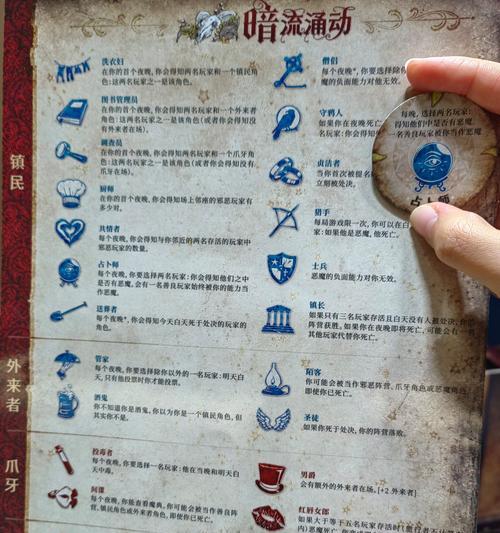 暗流涌动
镇民
洗衣妇
在你的首个夜晚,你会得知两名玩家和一个镇民角
色:这两名玩家之一是该角色。
图书管理员
在你的首个夜晚,你会得知两名玩家和一个外来者
角色:这两名玩家之一是该角色(或者你会得知没
有外来者在场)。
调查员
在你的首个夜晚,你会得知两名玩家和一个爪牙角
色:这两名玩家之一是该角色(或者你会得知没有
爪牙在场)。
厨师
在你的首个夜晚,你会得知场上邻座的邪恶玩家有
多少对。
共情者
每个夜晚,你会得知与你邻近的两名存活的玩家中
邪恶玩家的数量。
占卜师
每个夜晚,你要选择两名玩家:你会得知他们之中
是否有恶魔。会有一名善良玩家始终被你的能力当
作恶魔。
送葬者
每个夜晚*,你会得知今天白天死于处决的玩家的
角色。
僧侣
每个夜晚*,你要选择除你
魔的负面能力对他无效。
守鸦人
如果你在夜晚死亡
名玩家:你会得知
贞洁者
当你首次被提名
立刻被处决。
猎手
每局游戏限一次,你可以在白
家:如果他是恶魔,他死亡。
士兵
恶魔的负面能力对你无效。
镇长
如果只有三名玩家存活且白天没有人被处决,你
阵营获胜。如果你在夜晚即将死亡,可能会有一
其他玩家代替你死亡。
每晚,选择两名玩家:
得知他们中是否有恶魔。
一名善良玩家被你当作恶魔
占卜师
外来者
管家
每个夜晚,你要选择除你以外的一名玩家:明天白
天,只有他投票时你才能投票。
酒鬼
你不知道你是酒鬼。你以为你是一个镇民角色,但
其实你不是。
陌客
你可能会被当作邪恶阵营、爪牙角色或恶魔角色
即使你已死亡。
圣徒
如果你死于处决,你的阵营落败。
爪牙
投毒者
每个夜晚,你要选择一名玩家:他在当晚和明天白
天中毒。
间谍
每个夜晚,你能查看魔典。你可能会被当作善良阵
营、镇民角色或外来者角色,即使你已死亡。
男爵
会有额外的外来者在场。[+2 外来者]
红唇女郎
如果大于等于五名玩家存活时